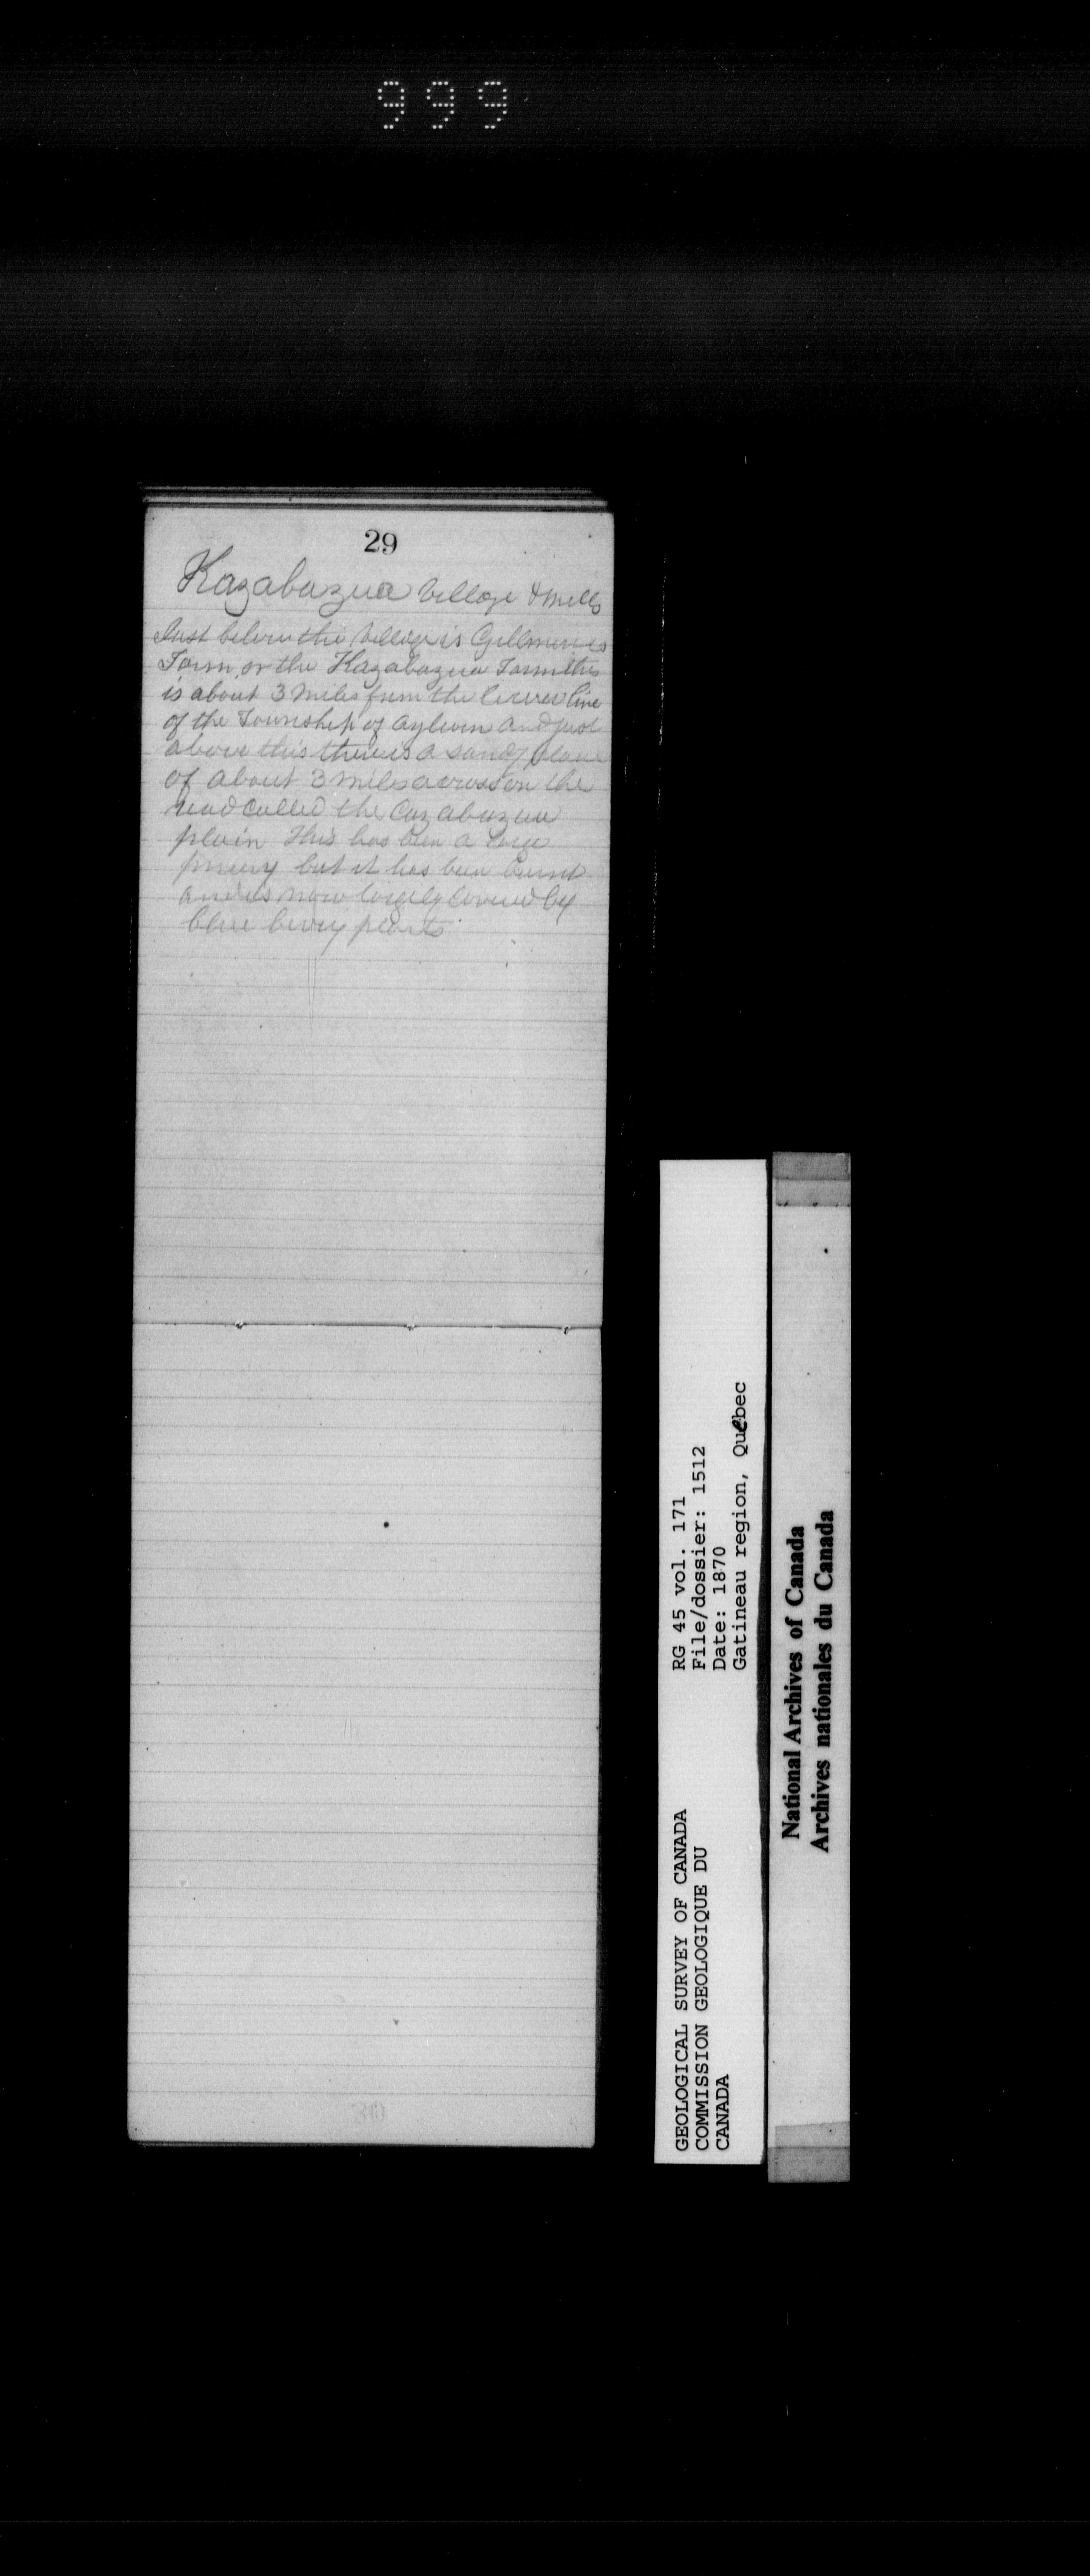 999
29
Kazabazua Village & Mills
Just below the Village is Gillmours
Farm, or the Kazabazua Farm this
is about 3 Miles from the lower line
of the Township of Aylwin and just
above this there is a sandy plane
of about 3 miles across on the
road called the Cazabazua
plain This has been a large
pinery but it has been burnt
and is now largely covered by
blue berry plants
RG 45 vol. 171
File/dossier: 1512
Date: 1870
Gatineau region, Quebec
GEOLOGICAL SURVEY OF CANADA
COMMISSION GEOLOGIQUE DU
CANADA
National Archives of Canada
Archives nationales du Canada